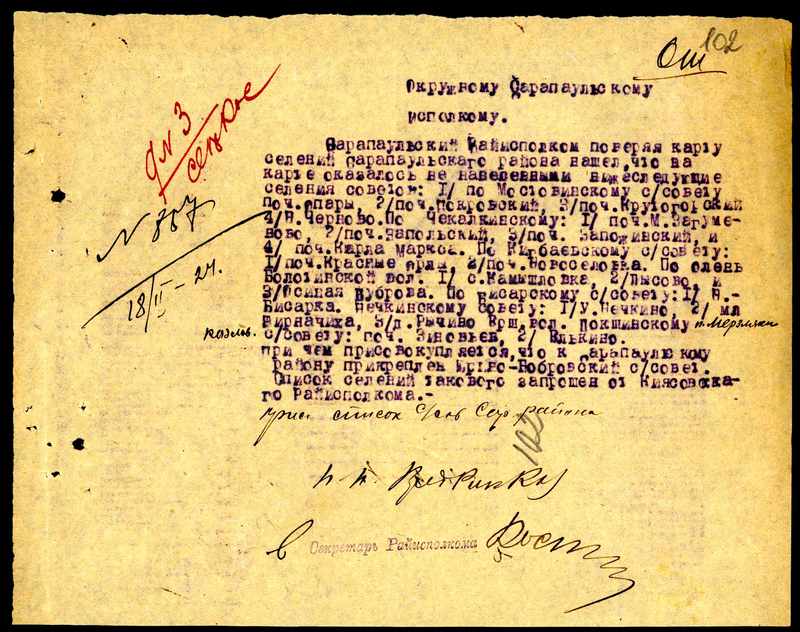 102
Окружному Сарапаульскому
исполкому.
Сарапаульский Райисполком поверяя карту
селений Сарапаульскаго района нашел,что на
карте оказалось не нанесенными нижеследующие
селения советов: 1/ по Мостовинскому с/совету
поч.опары, 2/поч.Покровский, 3/поч. Крутогорский
4/Н.Черново.По Чекалкинскому: 1/ поч.М.Загуме-
ново, 2/поч.Запольский, 3/поч. Заполинский, и
4/ поч.Карла Маркса. По с/совету:
1/поч.Красные ярлы, 2/поч.Новоселовка. По олень
Болотинской вол. 1/ с.Камышловка, 2/Лысово, и
3/Осипая Дуброва. По Бисарскому с/совету:1/ Н.-
Бисарка. Нечкинскому совету: 1/У.Нечкино, 2/ мл
3/д.Рычино Крш.вол. Докшинскому
с/совету: поч. Зиновьев, 2/ Юлькино.
при чем присовокупляется,что к Сарапаулскому
району прикреплен Юрино-Бобровский с/совет.
Список селений такового запрошен от Киясовска-
го Райисполкома.-
N 887
18/II - 24.
список район
102
Секретарь Райисполкома